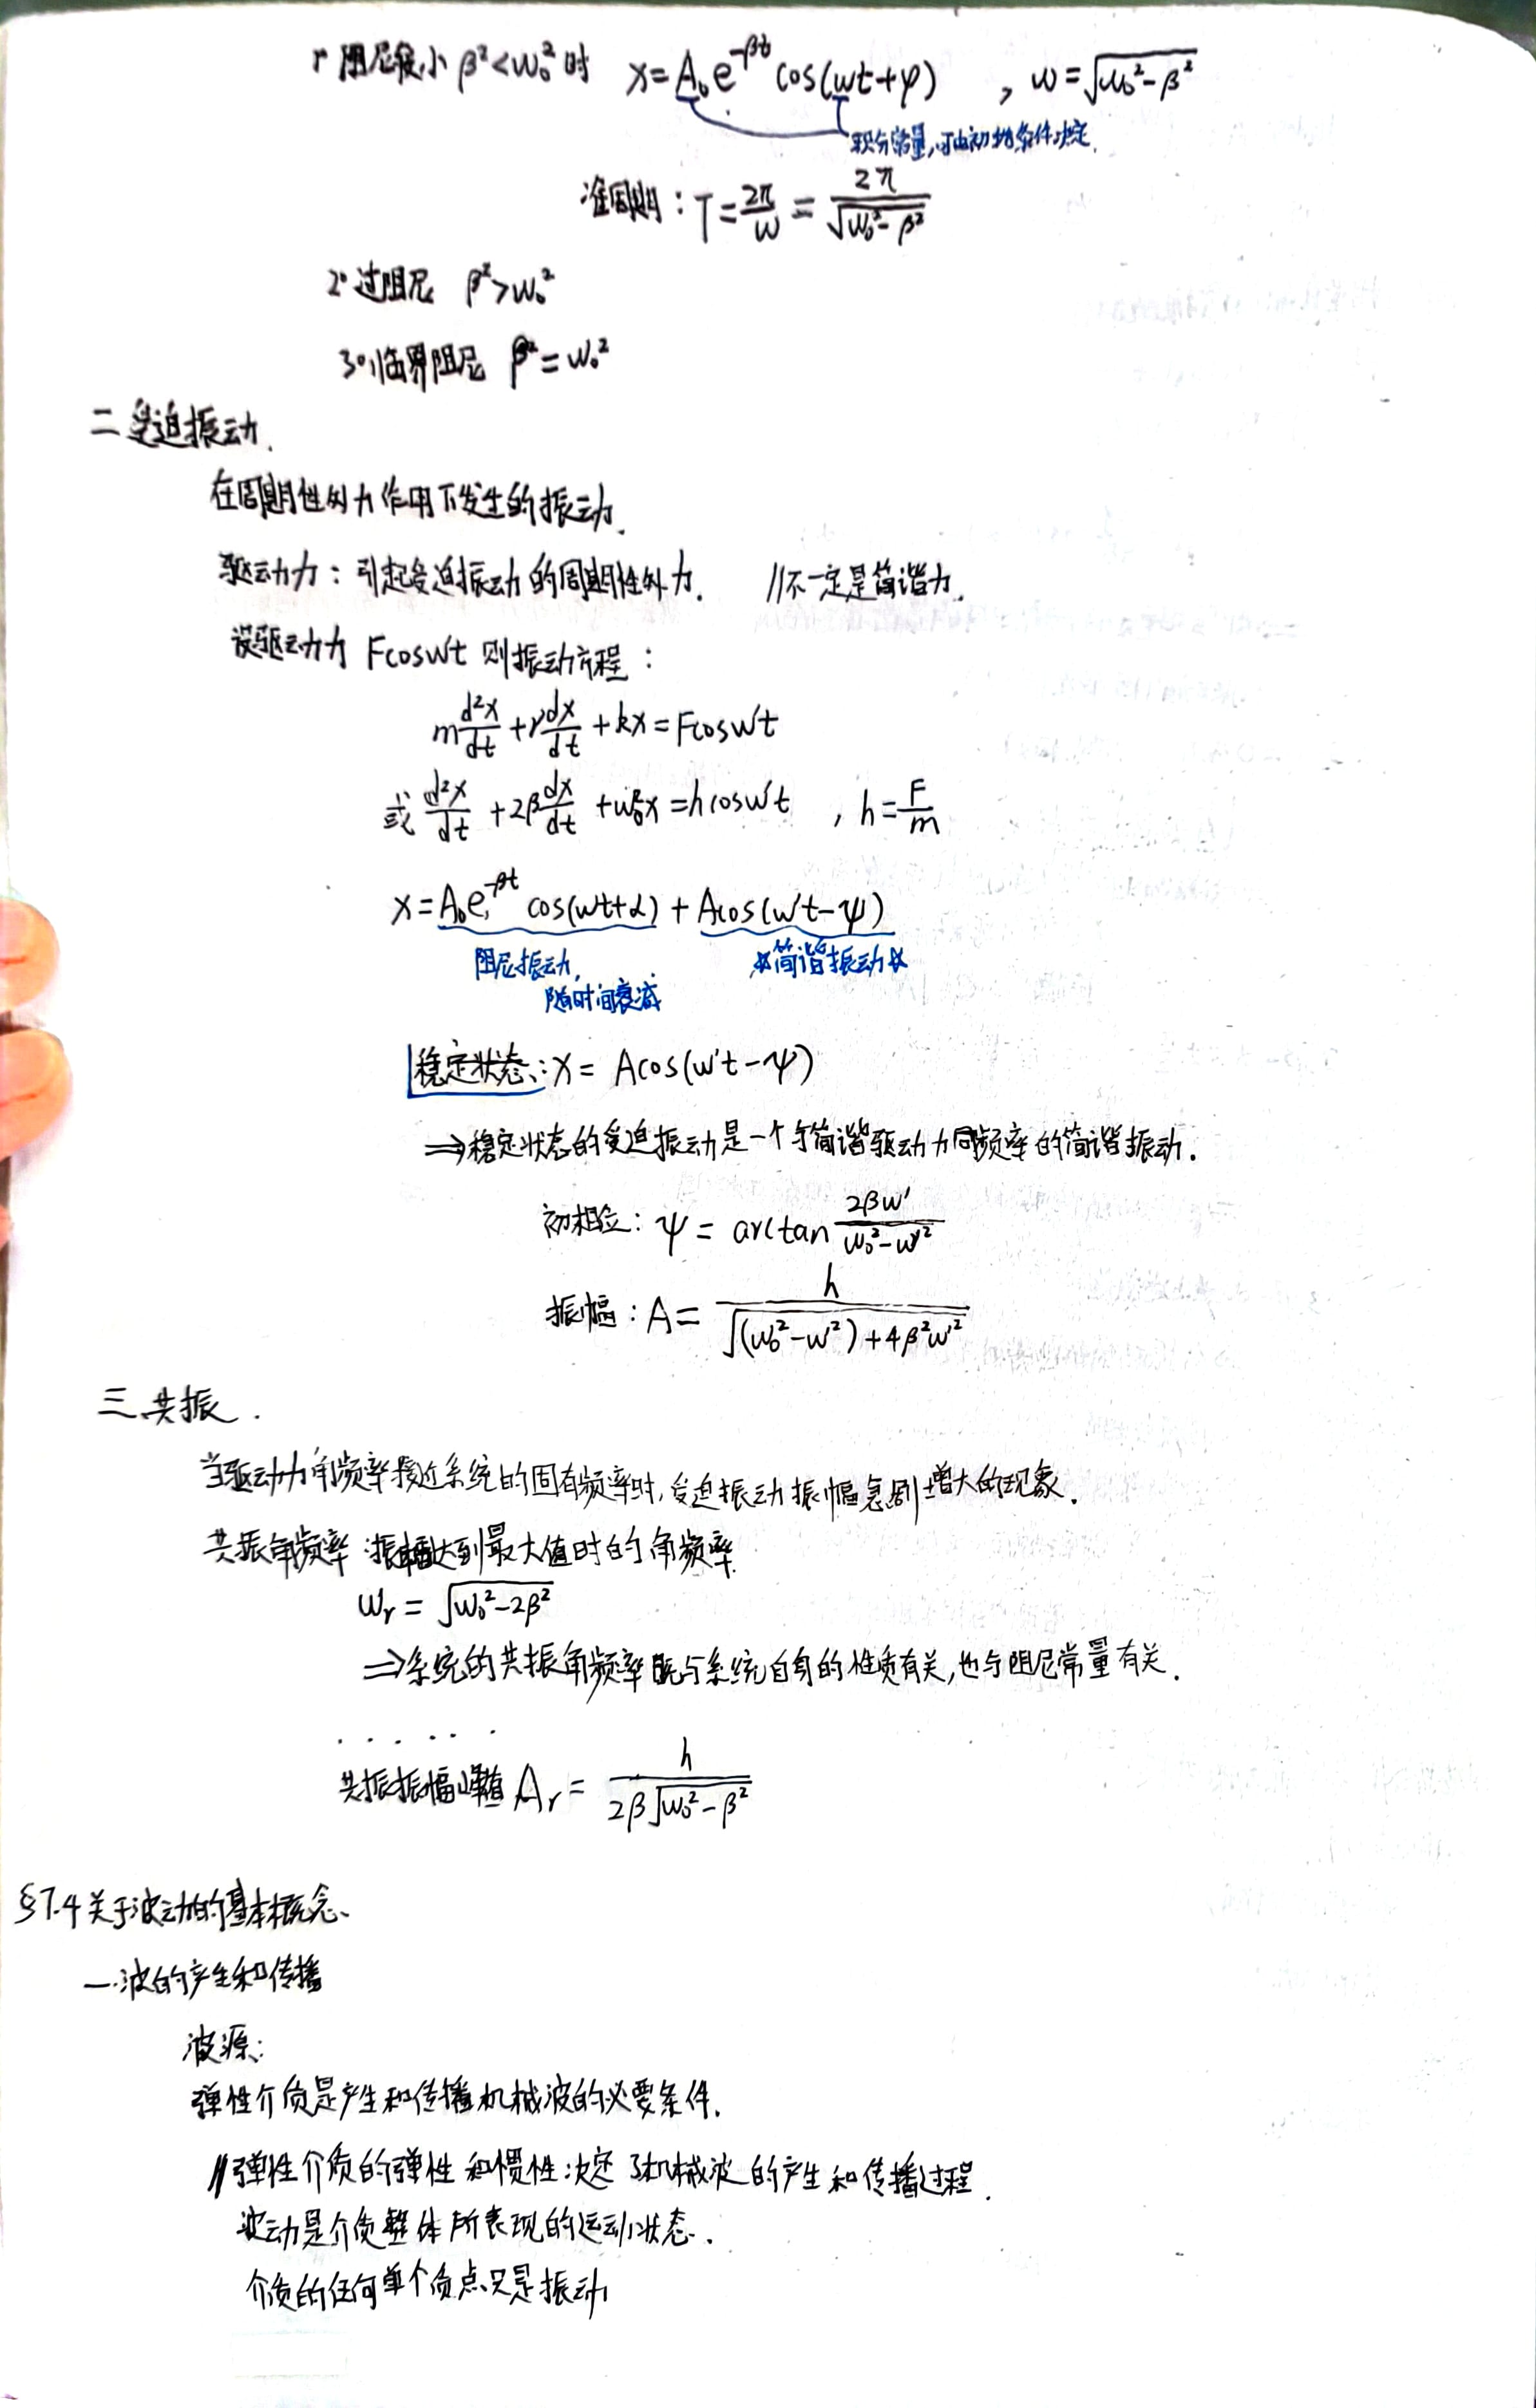 1° 阻尼很小 β²<ω₀² 时 x=A₀e^{-βt}cos(ωt+φ) , ω=√(ω₀²-β²)
积分常量,可由初始条件决定.
准周期: T=2π/ω=2π/√(ω₀²-β²)
2° 过阻尼 β²>ω₀²
3° 临界阻尼 β²=ω₀²
二 受迫振动.
在周期性外力作用下发生的振动.
驱动力: 引起受迫振动的周期性外力. //不一定是简谐力.
设驱动力为 Fcosω't 则振动方程:
m d²x/dt + r dx/dt + kx = Fcosω't
或 d²x/dt + 2β dx/dt + ω₀²x = hcosω't , h=F/m
x=A₀e^{-βt}cos(ωt+α)+Acos(ω't-ψ)
阻尼振动, ☆简谐振动☆
随时间衰减
稳定状态: x=Acos(ω't-ψ)
⇒稳定状态的受迫振动是一个与简谐驱动力同频率的简谐振动.
初相位: ψ=arctan 2βω'/(ω₀²-ω'²)
振幅: A=h/√((ω₀²-ω'²)+4β²ω'²)
三 共振.
当驱动力角频率接近系统的固有频率时,受迫振动振幅急剧增大的现象.
共振角频率:振幅达到最大值时的角频率.
ωᵣ=√(ω₀²-2β²)
⇒系统的共振角频率既与系统自身的性质有关,也与阻尼常量有关.
......
共振振幅峰值 Aᵣ=h/(2β√(ω₀²-β²))
§7.4 关于波动的基本概念
一.波的产生和传播
波源:
弹性介质是产生和传播机械波的必要条件.
//弹性介质的弹性和惯性决定了机械波的产生和传播过程.
波动是介质整体所表现的运动状态.
介质的任何单个质点只是振动